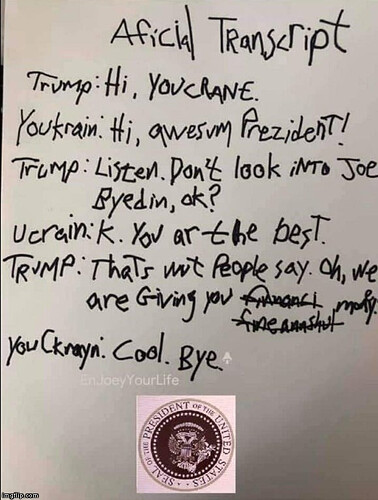 Aficial Transcript
Trump: Hi, YOUCRANE.
Youkrain: Hi, awesum Prezident!
Trump: Listen. Don't look iNTo Joe
Byedin, ok?
Ucrain: K. You ar the best.
TRUMP: Thats wut People say. Oh, we
are Giving you Financi mony.
fineanshul
you Ckrayn: Cool. Bye.
EnJoeyYourLife
SEAL OF THE PRESIDENT OF THE UNITED STATES
imgflip.com